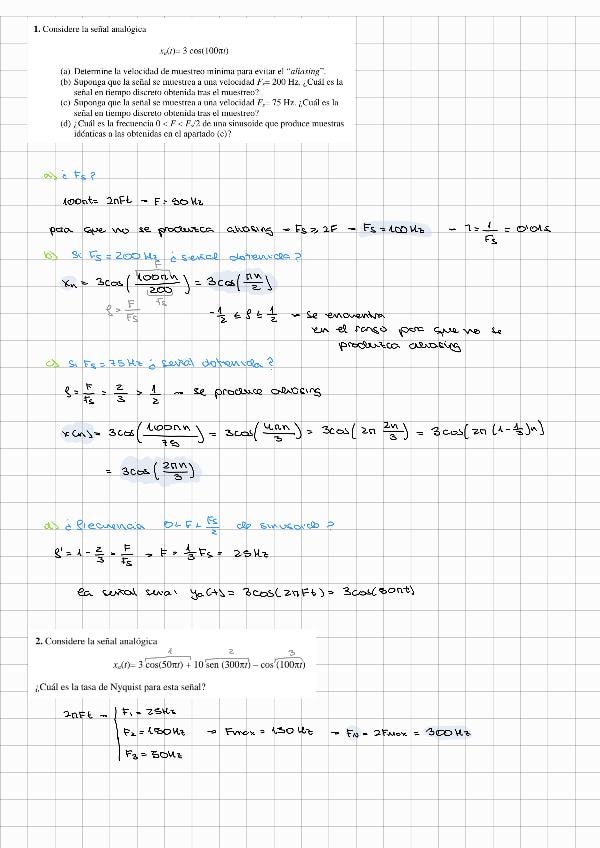 1. Considere la señal analógica
xₐ(t)= 3 cos(100πt)
(a) Determine la velocidad de muestreo mínima para evitar el "aliasing".
(b) Suponga que la señal se muestrea a una velocidad Fₛ= 200 Hz. ¿Cuál es la
señal en tiempo discreto obtenida tras el muestreo?
(c) Suponga que la señal se muestrea a una velocidad Fₛ= 75 Hz. ¿Cuál es la
señal en tiempo discreto obtenida tras el muestreo?
(d) ¿Cuál es la frecuencia 0 < F < Fₛ/2 de una sinusoide que produce muestras
idénticas a las obtenidas en el apartado (c)?
a) ¿ Fs?
100πt= 2πFt → F= 50 Hz
para que no se produzca aliasing → Fs ≥ 2F → Fs = 100 Hz → T = 1/Fs = 0'01s
b) Si Fs = 200 Hz ¿ señal obtenida?
xn = 3cos(100πn/200) = 3cos(πn/2)
F
Fs
f = F/Fs
-1/2 ≤ f ≤ 1/2 → se encuentra
en el rango por que no se
produzca aliasing
c) Si Fs = 75 Hz ¿ señal obtenida?
f = F/Fs = 2/3 > 1/2 → se produce aliasing
x(n) = 3cos(100πn/75) = 3cos(4πn/3) = 3cos(2π 2n/3) = 3cos(2π (1-1/3)n)
= 3cos(2πn/3)
d) ¿ frecuencia 0<F<Fs/2 de sinusoide?
f' = 1 - 2/3 = F/Fs → F = 1/3 Fs = 25 Hz
la señal sera: ya(t) = 3cos(2πFt) = 3cos(50πt)
2. Considere la señal analógica
1 2 3
xₐ(t)= 3 cos(50πt) + 10 sen (300πt) – cos (100πt)
¿Cuál es la tasa de Nyquist para esta señal?
2πFt → F1 = 25Hz
F2 = 150Hz → Fmax = 150 Hz → FN = 2Fmax = 300 Hz
F3 = 50Hz